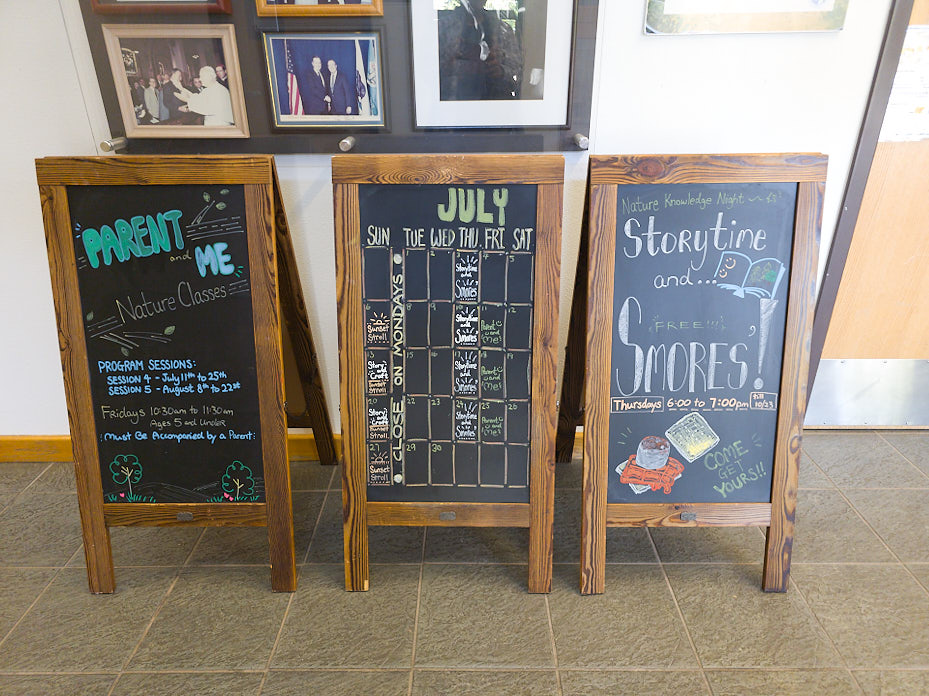 PARENT
and ME
Nature Classes
PROGRAM SESSIONS:
SESSION 4 - July 11th to 25th
SESSION 5 - August 8th to 22st
Fridays 10:30am to 11:30am
Ages 5 and Under
! Must Be Accompanied by a Parent!
JULY
SUN TUE WED THU FRI SAT
CLOSE ON MONDAYS
1 2 3 4 5
Storytime
and
S'mores
6 8 9 10 11 12
Sunset
Stroll
Storytime
and
S'mores
Parent
and
Me!
13 15 16 17 18 19
Story
and Craft
Sunset
Stroll
Storytime
and
S'mores
Parent
and
Me!
20 22 23 24 25 26
Story
and Craft
Sunset
Stroll
Storytime
and
S'mores
Parent
and
Me!
27 29 30
Sunset
Stroll
Nature Knowledge Night
Storytime
and...
FREE!!!
SMORES'!
Thursdays 6:00 to 7:00pm till 10/23
COME
GET
YOURS!!